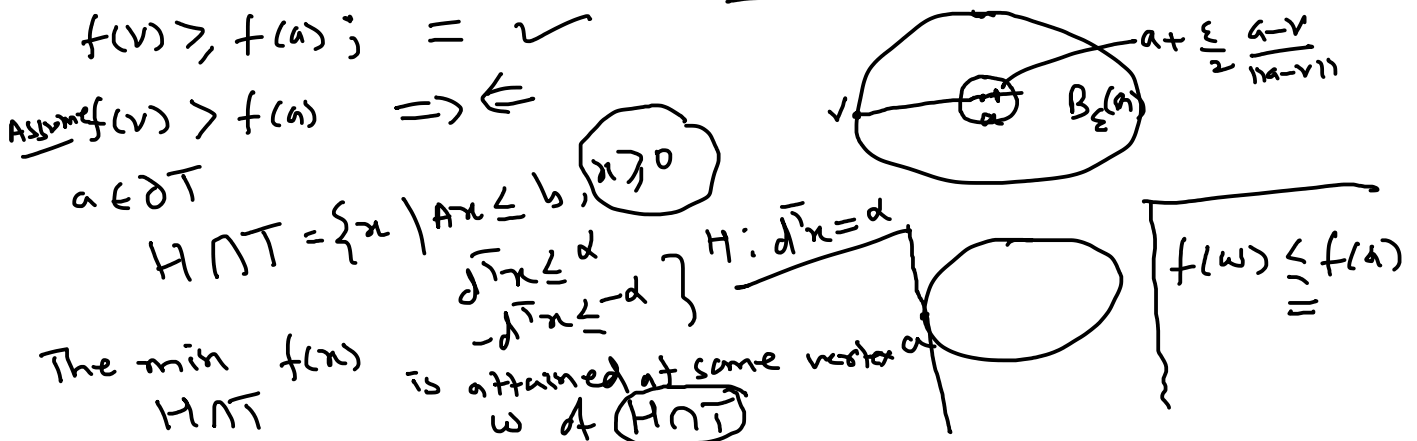 f(v) ≥ f(a) ; = ✓
Assume f(v) > f(a) ⇒ ⇐
a ∈ ∂T
H∩T = {x | Ax ≤ b, x ≥ 0
dᵀx ≤ α
-dᵀx ≤ -α }
H : dᵀx = α
The min f(x) is attained at some vertex
H∩T w of H∩T
a + ε/2 (a-v)/||a-v||
v
a
B_ε(a)
a
f(w) ≤ f(a)
=